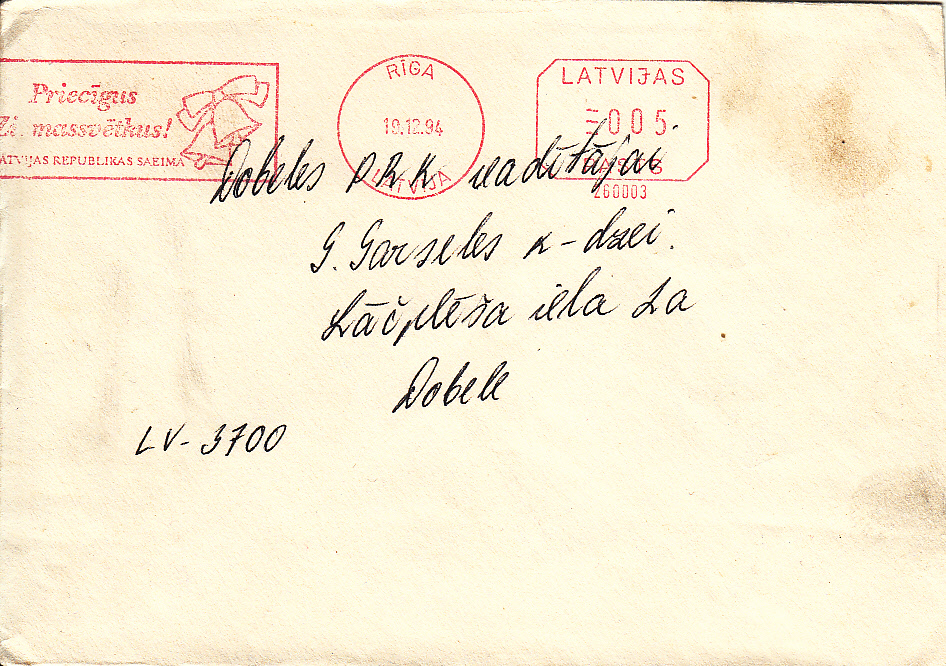 Priecīgus
Zi massvētkus!
ATVIJAS REPUBLIKAS SAEIMA
RĪGA
19.12.94
LATVIJA
LATVIJAS
005
PASTS
260003
Dobeles PRK vadītājai
G. Garseles k-dzei.
Lāčplēša iela 2a
Dobele
LV-3700